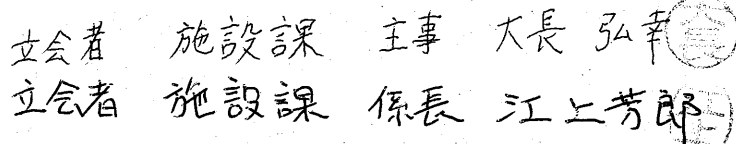 立会者 施設課 主事 大長 弘幸
立会者 施設課 係長 江上芳郎